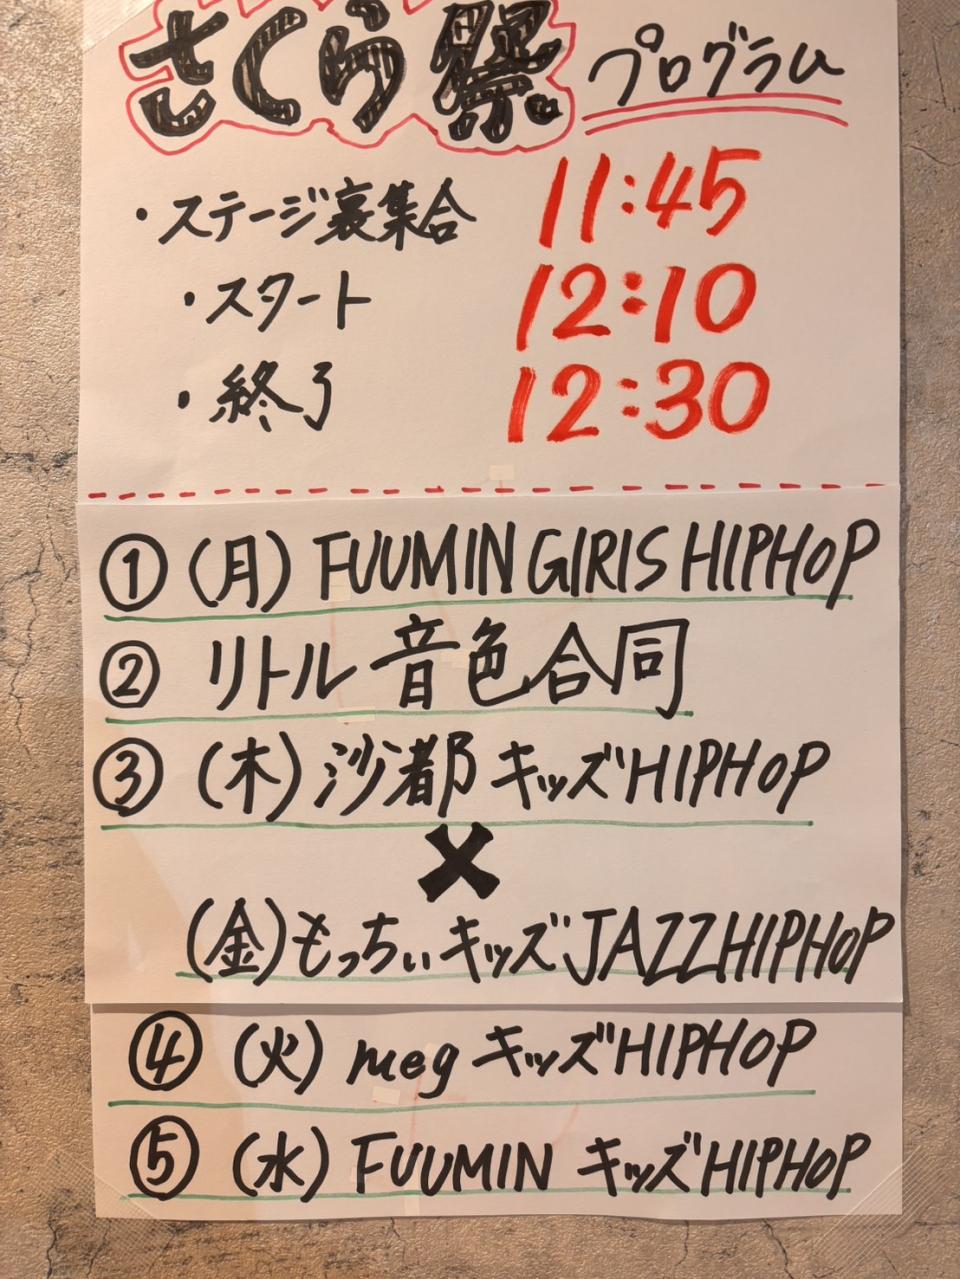 さくら祭 プログラム
・ステージ裏集合 11:45
・スタート 12:10
・終了 12:30
① (月) FUUMIN GIRIS HIPHOP
② リトル音色合同
③ (木) 沙都 キッズHIPHOP
×
(金) もっちぃキッズJAZZHIPHOP
④ (火) meg キッズHIPHOP
⑤ (水) FUUMIN キッズHIPHOP